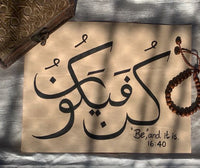 كُن فَيَكُونُ
"Be," and it is.
16:40